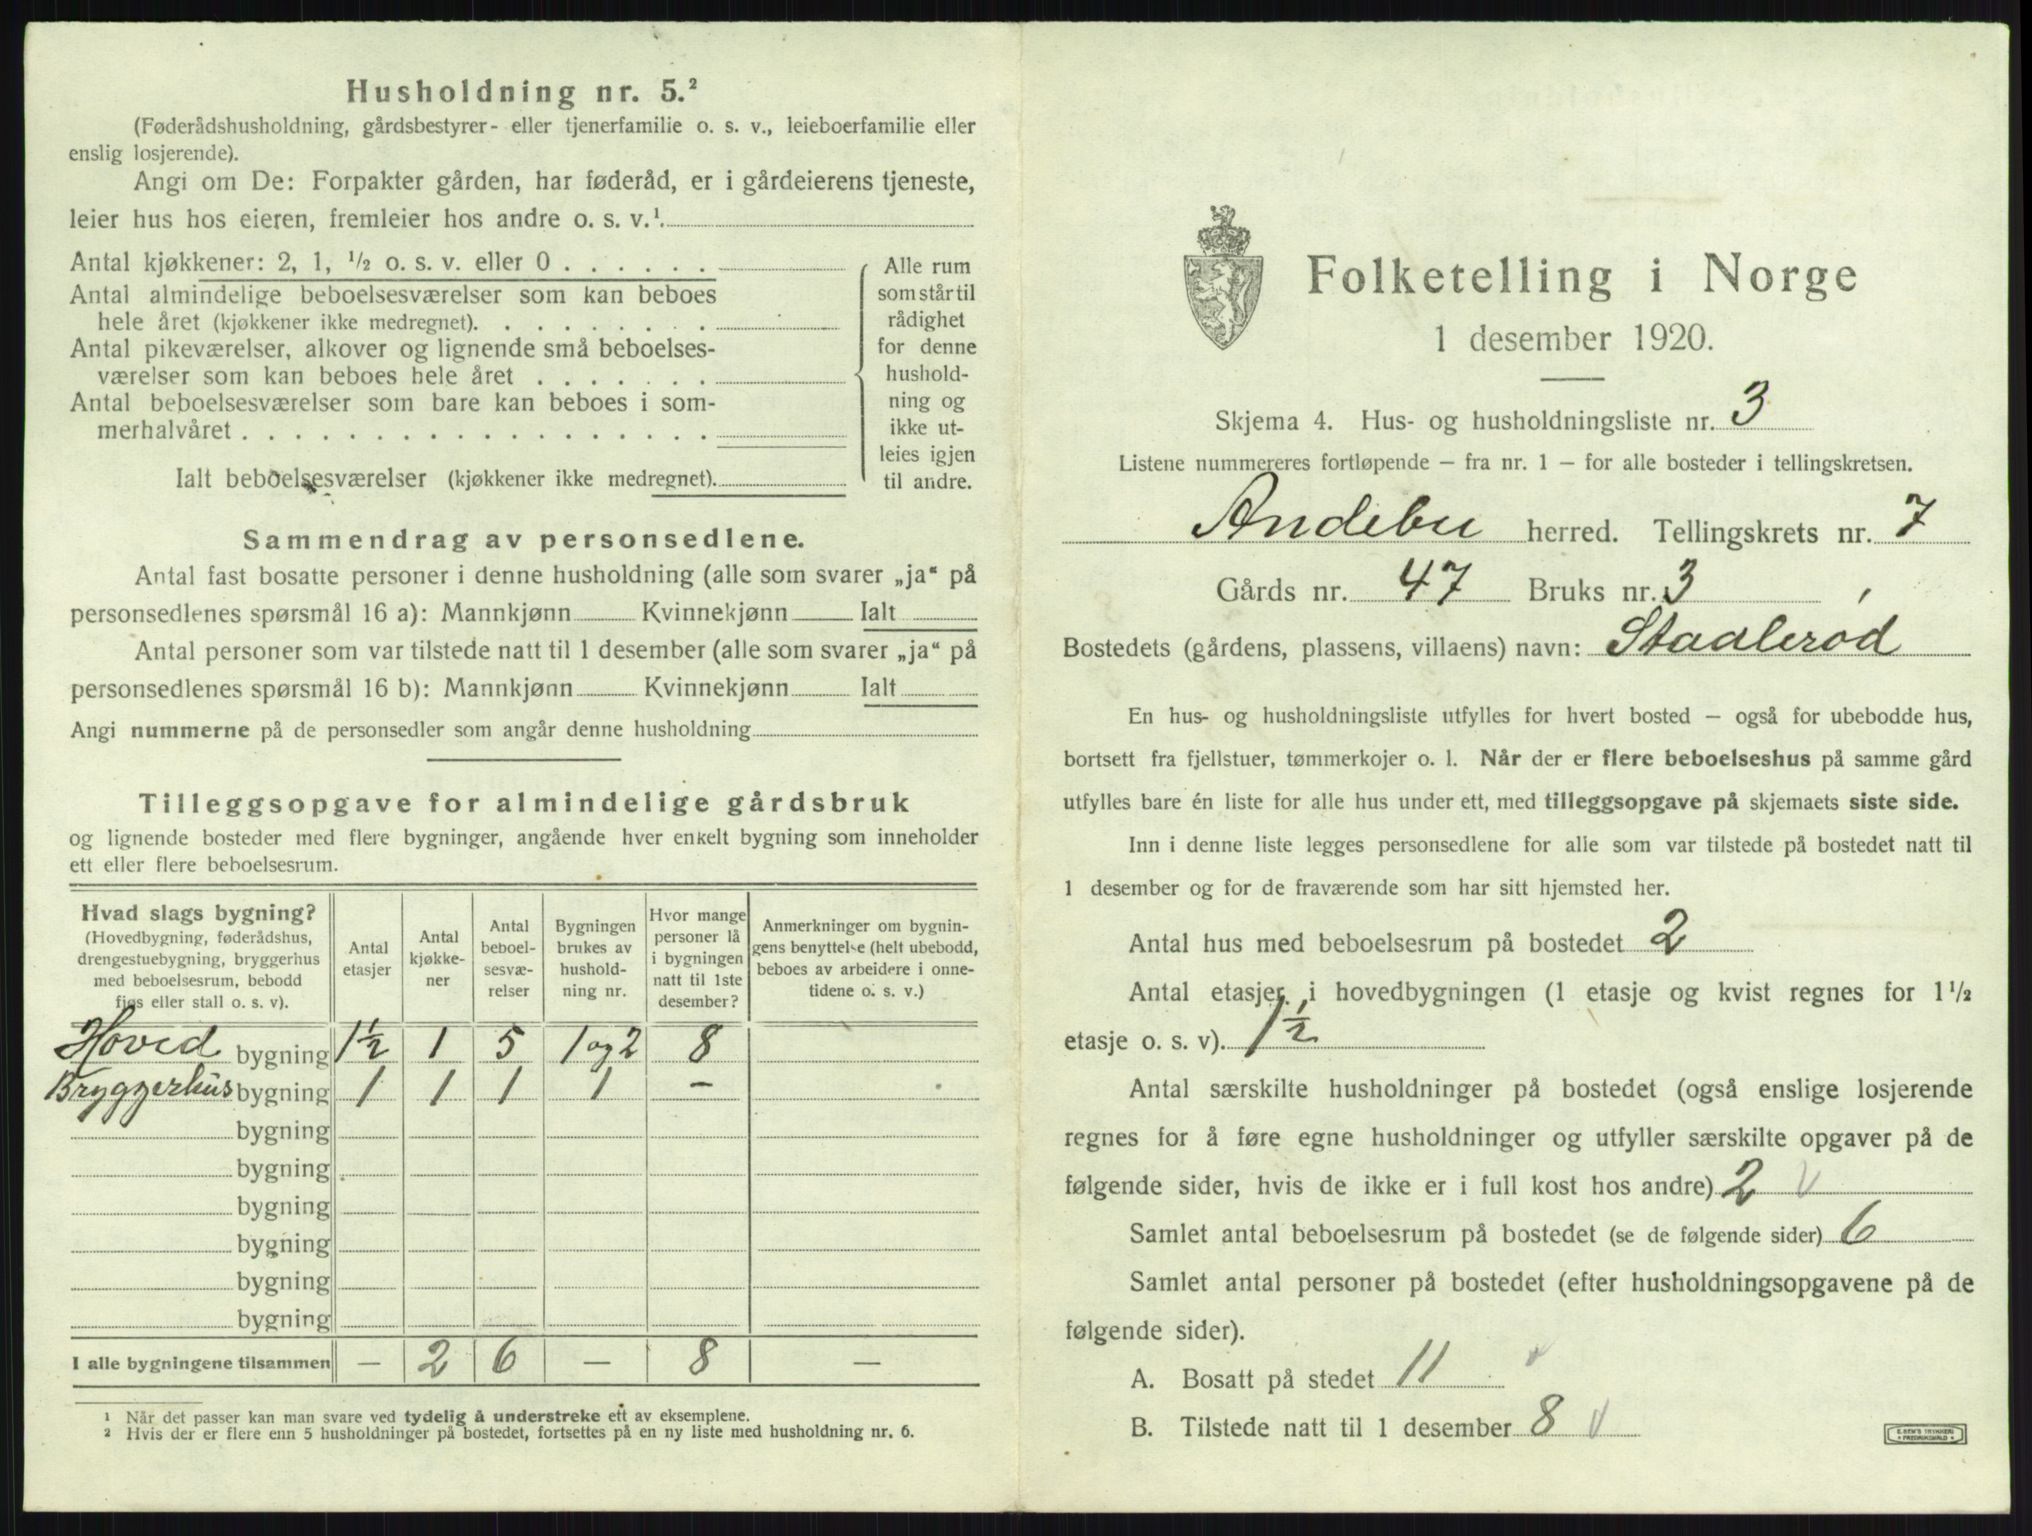 Husholdning nr. 5.²
(Føderådshusholdning, gårdsbestyrer- eller tjenerfamilie o. s. v., leieboerfamilie eller
enslig losjerende).
Angi om De: Forpakter gården, har føderåd, er i gårdeierens tjeneste,
leier hus hos eieren, fremleier hos andre o. s. v.¹.
Antal kjøkkener: 2, 1, ½ o. s. v. eller 0 . . . . . .
Antal almindelige beboelsesværelser som kan beboes
hele året (kjøkkener ikke medregnet). . . . . . . . .
Antal pikeværelser, alkover og lignende små beboelses-
værelser som kan beboes hele året . . . . . . .
Antal beboelsesværelser som bare kan beboes i som-
merhalvåret . . . . . . . . . . . . . . . . . .
Ialt beboelsesværelser (kjøkkener ikke medregnet).
Alle rum
som står til
rådighet
for denne
hushold-
ning og
ikke ut-
leies igjen
til andre.
Sammendrag av personsedlene.
Antal fast bosatte personer i denne husholdning (alle som svarer „ja“ på
personsedlenes spørsmål 16 a): Mannkjønn Kvinnekjønn Ialt
Antal personer som var tilstede natt til 1 desember (alle som svarer „ja“ på
personsedlenes spørsmål 16 b): Mannkjønn Kvinnekjønn Ialt
Angi nummerne på de personsedler som angår denne husholdning
Tilleggsopgave for almindelige gårdsbruk
og lignende bosteder med flere bygninger, angående hver enkelt bygning som inneholder
ett eller flere beboelsesrum.
Hvad slags bygning?
(Hovedbygning, føderådshus,
drengestuebygning, bryggerhus
med beboelsesrum, bebodd
fjøs eller stall o. s. v).
Antal
etasjer
Antal
kjøkke-
ner
Antal
beboel-
sesvæ-
relser
Bygningen
brukes av
hushold-
ning nr.
Hvor mange
personer lå
i bygningen
natt til 1ste
desember?
Anmerkninger om bygnin-
gens benyttelse (helt ubebodd,
beboes av arbeidere i onne-
tidene o. s. v.)
Hoved bygning 1½ 1 5 1 og 2 8
Bryggerhus bygning 1 1 1 1 –
bygning
bygning
bygning
bygning
bygning
bygning
I alle bygningene tilsammen — 2 6 — 8 —
¹ Når det passer kan man svare ved tydelig å understreke ett av eksemplene.
² Hvis der er flere enn 5 husholdninger på bostedet, fortsettes på en ny liste med husholdning nr. 6.
Folketelling i Norge
1 desember 1920.
Skjema 4. Hus- og husholdningsliste nr. 3
Listene nummereres fortløpende – fra nr. 1 – for alle bosteder i tellingskretsen.
Andebu herred. Tellingskrets nr. 7
Gårds nr. 47 Bruks nr. 3
Bostedets (gårdens, plassens, villaens) navn: Staalerød
En hus- og husholdningsliste utfylles for hvert bosted – også for ubebodde hus,
bortsett fra fjellstuer, tømmerkojer o. l. Når der er flere beboelseshus på samme gård
utfylles bare én liste for alle hus under ett, med tilleggsopgave på skjemaets siste side.
Inn i denne liste legges personsedlene for alle som var tilstede på bostedet natt til
1 desember og for de fraværende som har sitt hjemsted her.
Antal hus med beboelsesrum på bostedet 2
Antal etasjer i hovedbygningen (1 etasje og kvist regnes for 1½
etasje o. s. v). 1½
Antal særskilte husholdninger på bostedet (også enslige losjerende
regnes for å føre egne husholdninger og utfyller særskilte opgaver på de
følgende sider, hvis de ikke er i full kost hos andre) 2 v
Samlet antal beboelsesrum på bostedet (se de følgende sider) 6
Samlet antal personer på bostedet (efter husholdningsopgavene på de
følgende sider).
A. Bosatt på stedet 11 v
B. Tilstede natt til 1 desember 8 v
E. SEM'S TRYKKERI
FREDRIKSHALD